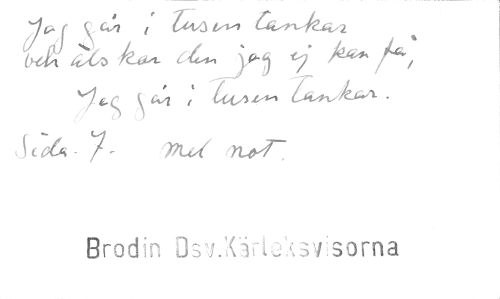 Jag går i tusen tankar
och älskar den jag ej kan få,
Jag går i tusen tankar.
Sida. 7. mel not.
Brodin Dsv.Kärleksvisorna